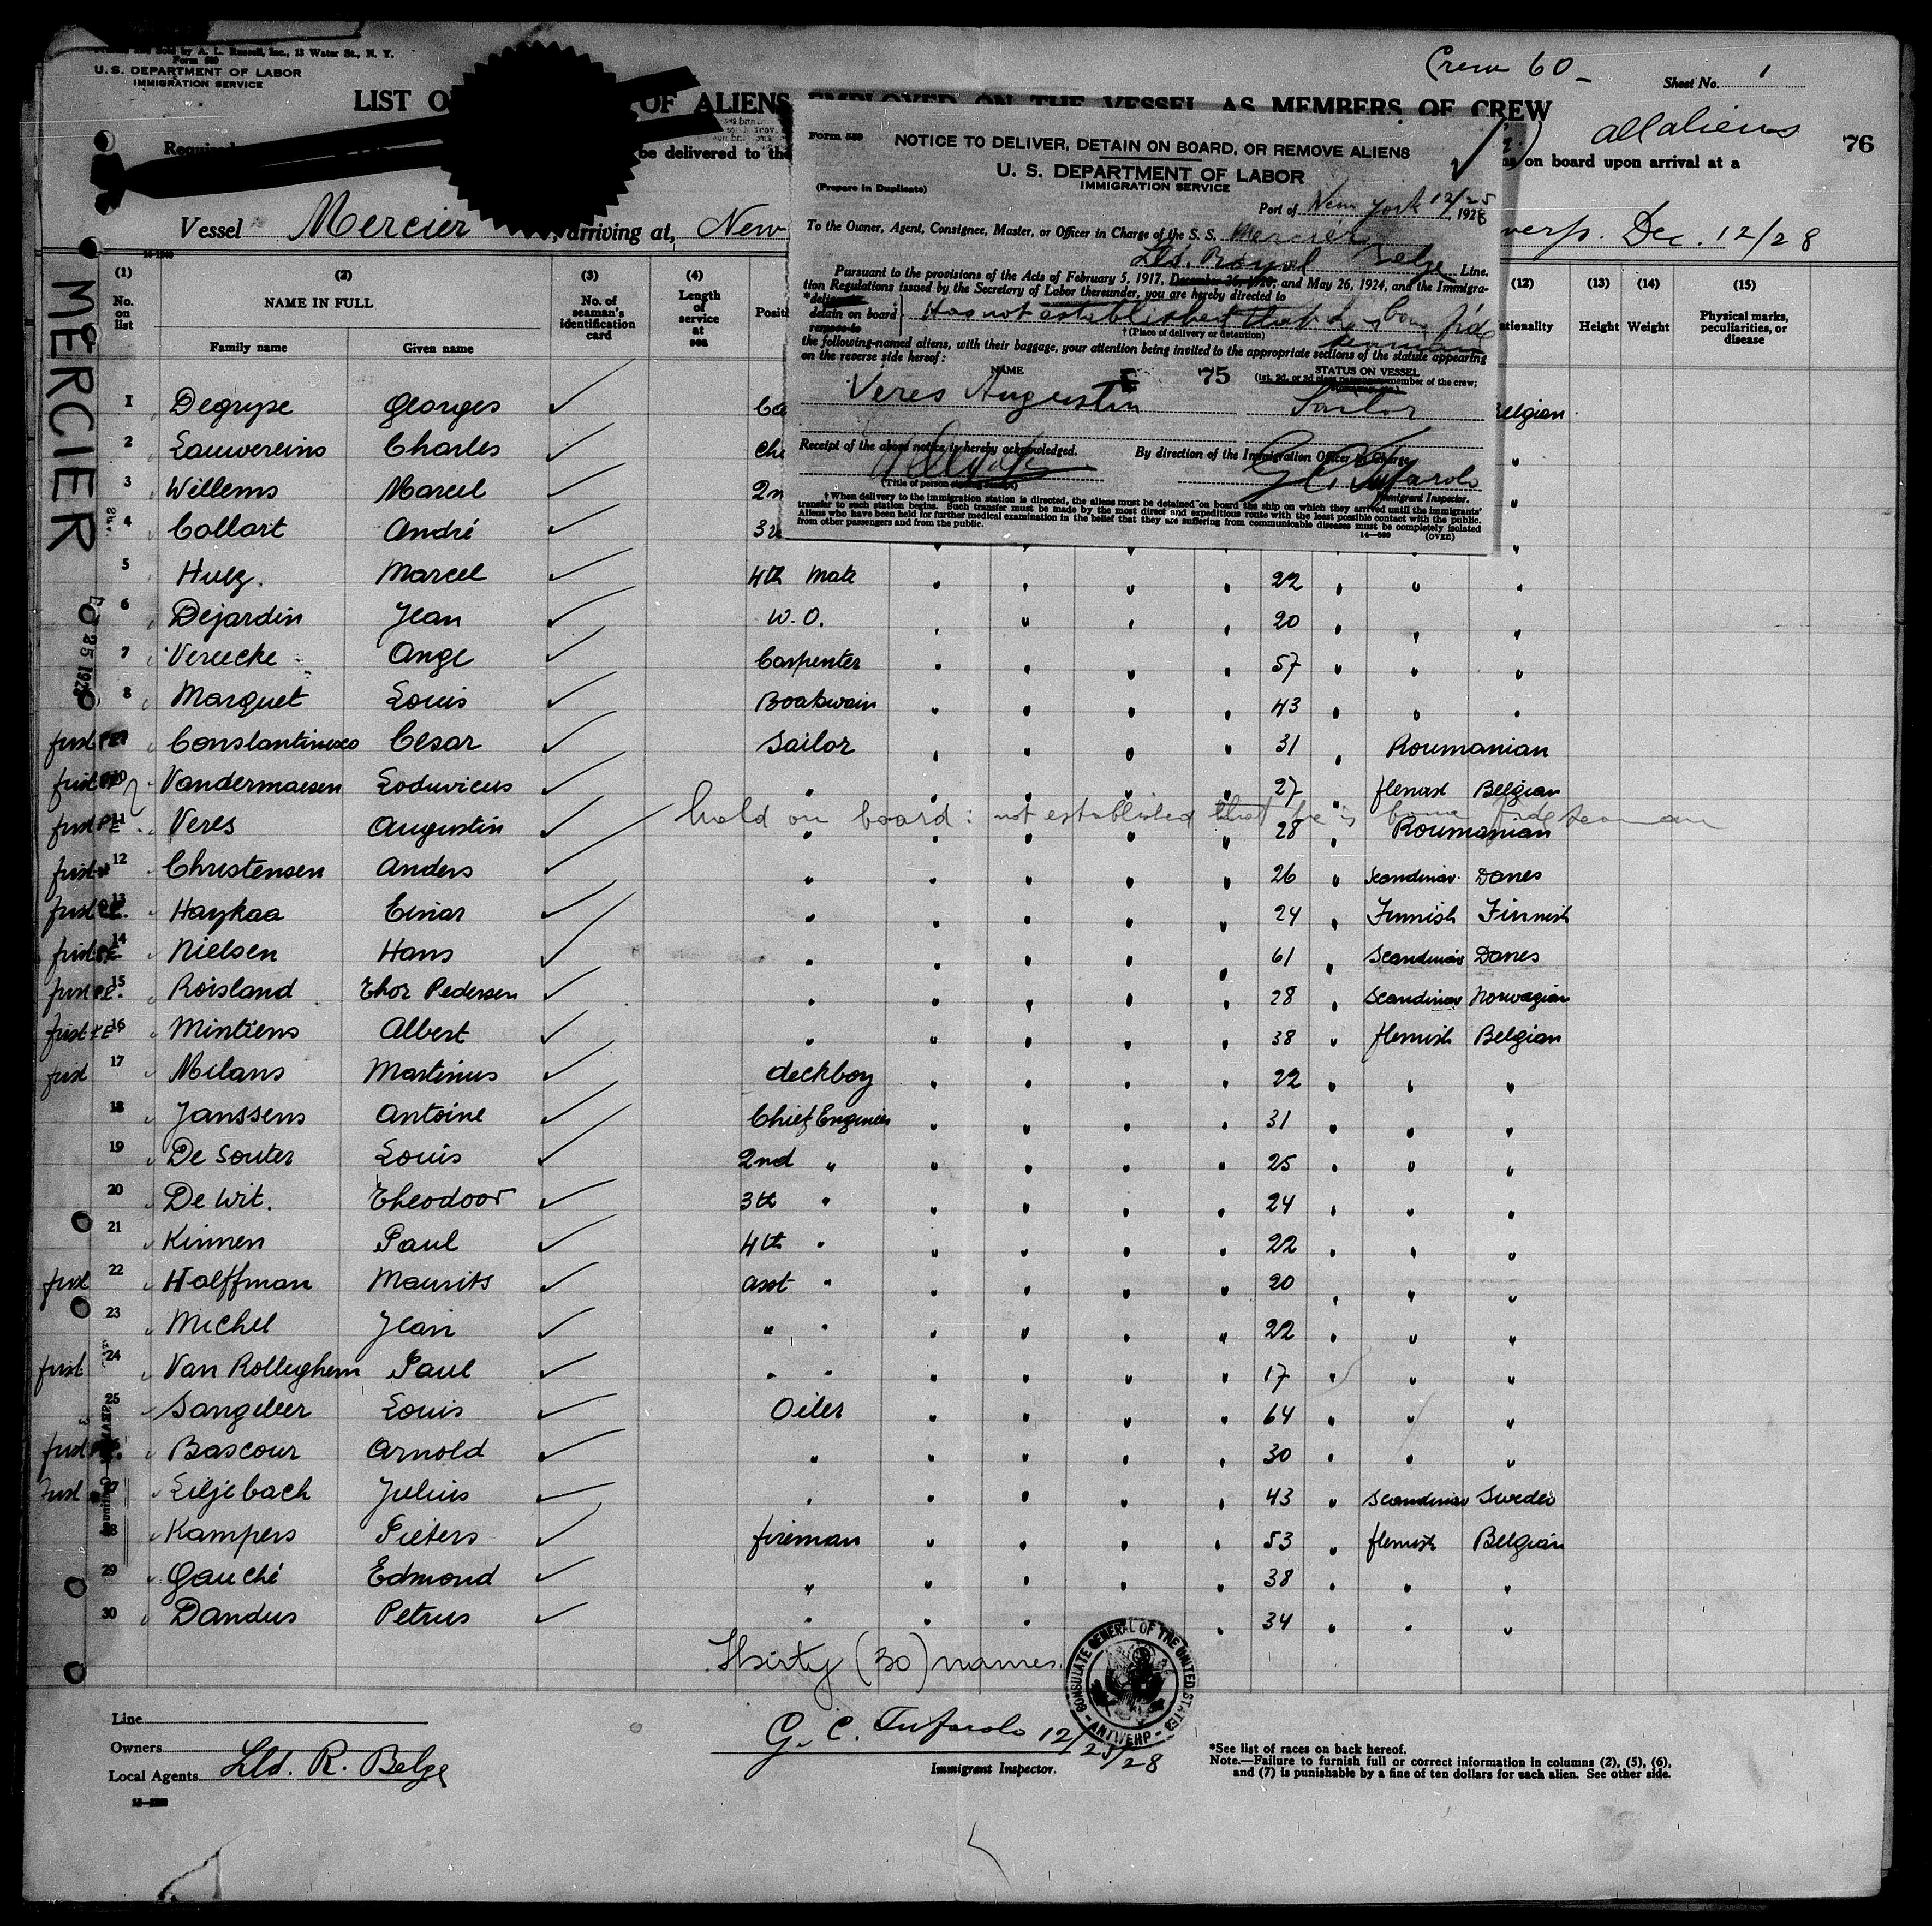 Printed and Sold by A. L. Russell, Inc., 13 Water St., N. Y.
Form 680
U. S. DEPARTMENT OF LABOR
IMMIGRATION SERVICE
Crew 60
Sheet No. 1
LIST O OF ALIENS EMPLOYED ON THE VESSEL AS MEMBERS OF CREW
all aliens
76
Required be delivered to the on board upon arrival at a
Vessel Mercier, arriving at, New verp. Dec. 12/28
MERCIER
Form 580
NOTICE TO DELIVER, DETAIN ON BOARD, OR REMOVE ALIENS
U. S. DEPARTMENT OF LABOR
IMMIGRATION SERVICE
(Prepare in Duplicate)
Port of New York 12/25, 1928
To the Owner, Agent, Consignee, Master, or Officer in Charge of the S. S. Mercier
Lld. Royal Belge Line.
Pursuant to the provisions of the Acts of February 5, 1917, December 26, 1920, and May 26, 1924, and the Immigra-
tion Regulations issued by the Secretary of Labor thereunder, you are hereby directed to
*deliver to
detain on board
remove to
Has not established that he is bona fide
seaman
†(Place of delivery or detention)
the following-named aliens, with their baggage, your attention being invited to the appropriate sections of the statute appearing
on the reverse side hereof:
NAME
75
STATUS ON VESSEL
Veres Augustin Sailor
Receipt of the above notice is hereby acknowledged.
By direction of the Immigration Officer in Charge,
G. C. Tufarolo
(Title of person
Immigrant Inspector.
†When delivery to the immigration station is directed, the aliens must be detained on board the ship on which they arrived until the immigrants'
transfer to such station begins. Such transfer must be made by the most direct and expeditious route with the least possible contact with the public.
Aliens who have been held for further medical examination in the belief that they are suffering from communicable diseases must be completely isolated
from other passengers and from the public.
14—680 (OVER)
(1) (2) (3) (4) (12) (13) (14) (15)
No. on list
NAME IN FULL
Family name Given name
No. of seaman's identification card
Length of service at sea
Positi
tionality
Height Weight
Physical marks, peculiarities, or disease
1 Degryse Georges Ca elgian
2 Lauwereins Charles Chi "
3 Willems Marcel 2n "
4 Collart André 3r "
5 Hulz. Marcel 4th Mate " " " " 22 " " "
6 Dejardin Jean W.O. " " " " 20 " " "
7 Vereecke Ange Carpenter " " " " 57 " " "
8 Marquet Louis Boatswain " " " " 43 " " "
first PE 9 Constantinesco Cesar Sailor " " " " 31 " Roumanian
first 10 Vandermaesen Loduvicus " " " " " 27 " flemish Belgian
hold on board: not established that he is bona fide seaman
first PE 11 Veres Augustin " " " " " 28 " Roumanian
first 12 Christensen Anders " " " " " 26 " Scandinav. Danes
first PE. 13 Haykaa Einar " " " " " 24 " Finnish Finnish
first PE 14 Nielsen Hans " " " " " 61 " Scandinav Danes
first PE. 15 Roisland Thor Pedersen " " " " " 28 " Scandinav Norwegian
first PE 16 Mintiens Albert " " " " " 38 " flemish Belgian
first 17 Milans Martinus deckboy " " " " 22 " " "
18 Janssens Antoine Chief Engineer " " " " 31 " " "
19 De Souter Louis 2nd " " " " " 25 " " "
20 De Wit. Theodoor 3th " " " " " 24 " " "
21 Kinnen Paul 4th " " " " " 22 " " "
first 22 Halffman Maurits asst " " " " " 20 " " "
23 Michel Jean " " " " " " 22 " " "
first 24 Van Rolleghem Paul " " " " " " 17 " " "
25 Sangeleer Louis Oiler " " " " 64 " " "
first 26 Bascour Arnold " " " " " 30 " " "
first 27 Liljebach Julius " " " " " 43 " Scandinav Swedes
28 Kampers Pieters fireman " " " " 53 " flemish Belgian
29 Gauché Edmond " " " " " 38 " " "
30 Dandus Petrus " " " " " 34 " " "
Thirty (30) names
CONSULATE GENERAL OF THE UNITED STATES - ANTWERP -
Line
Owners
Local Agents Lld. R. Belge
G. C. Tufarolo 12/25/28
Immigrant Inspector.
*See list of races on back hereof.
Note.—Failure to furnish full or correct information in columns (2), (5), (6),
and (7) is punishable by a fine of ten dollars for each alien. See other side.